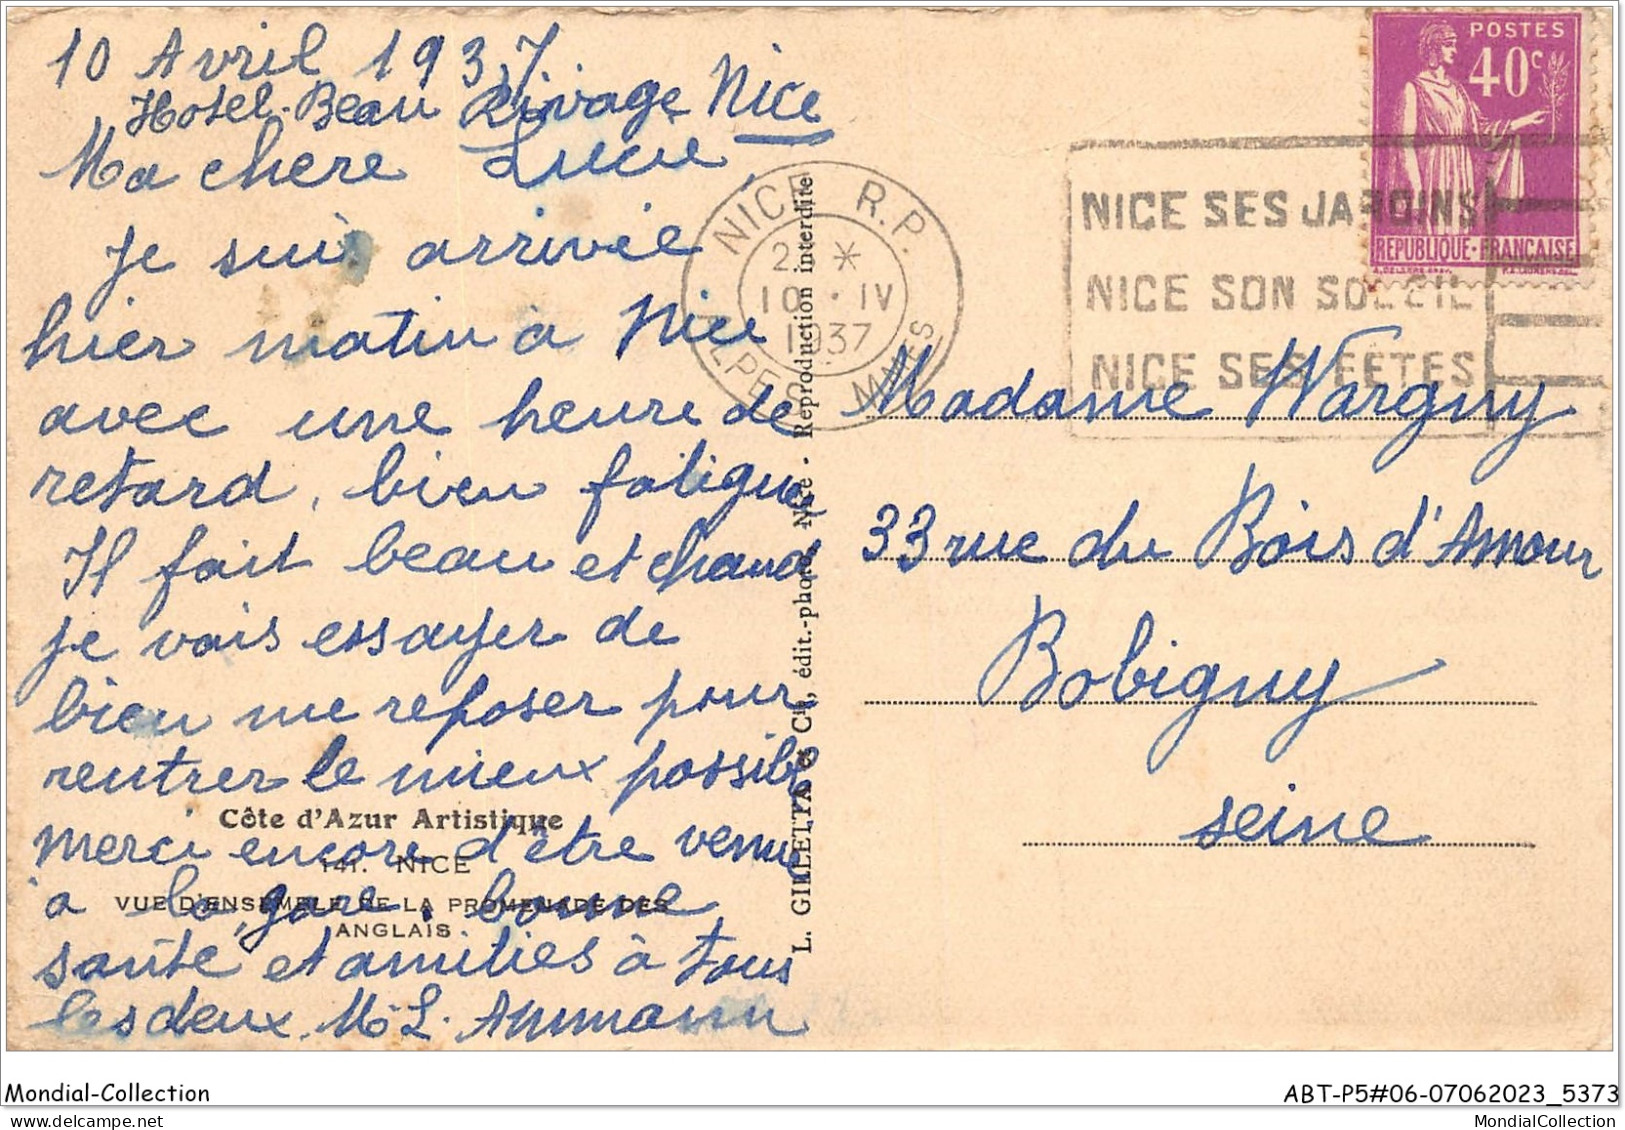 10 Avril 1937
Hotel-Beau Rivage Nice
Ma chere Lucie,
je suis arrivée
hier matin à Nice
avec une heure de
retard, bien fatiguée
Il fait beau et chaud
je vais essayer de
bien me reposer pour
rentrer le mieux possible
merci encore d'être venue
à la gare, bonne
santé et amitiés à tous
les deux. M. L. Ammann
Côte d'Azur Artistique
141. NICE
VUE D'ENSEMBLE DE LA PROMENADE DES
ANGLAIS
L. GILLETTA et Cie, édit.-phot., Nice. - Reproduction interdite
NICE R.P.
2 *
10 · IV
1937
ALPES MMES
NICE SES JARDINS
NICE SON SOLEIL
NICE SES FETES
POSTES
40c
REPUBLIQUE·FRANCAISE
Madame Wargny
33 rue du Bois d'Amour
Bobigny
seine
Mondial-Collection
ABT-P5#06-07062023_5373
MondialCollection